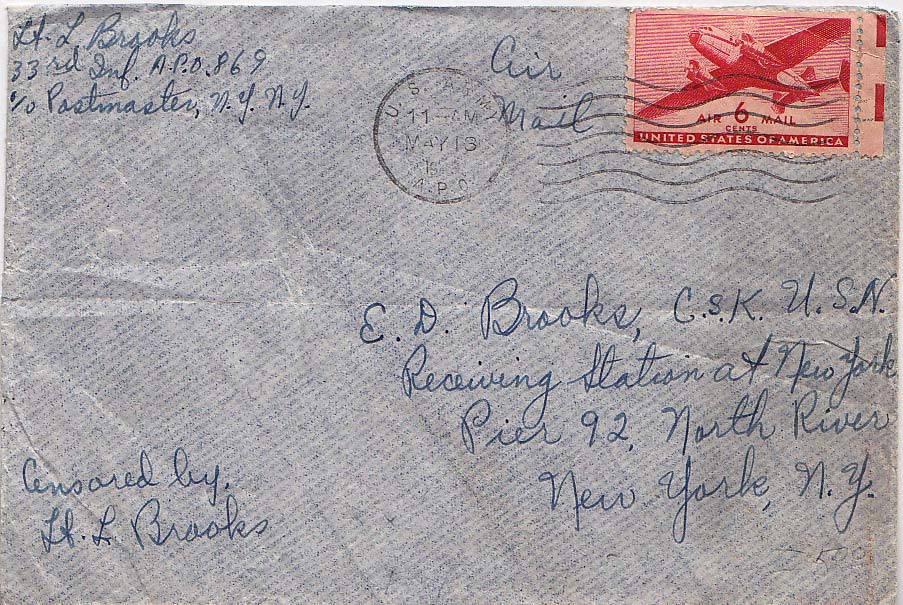 Lt. L Brooks
33rd Inf. A.P.O. 869
c/o Postmaster, N.Y. N.Y.
Air
Mail
U.S. ARMY
11 - AM
MAY 18
A.P.O.
AIR 6 MAIL
CENTS
UNITED STATES OF AMERICA
E. D. Brooks, C.S.K. U.S.N.
Receiving Station at New York
Pier 92, North River
New York, N.Y.
Censored by,
Lt. L Brooks